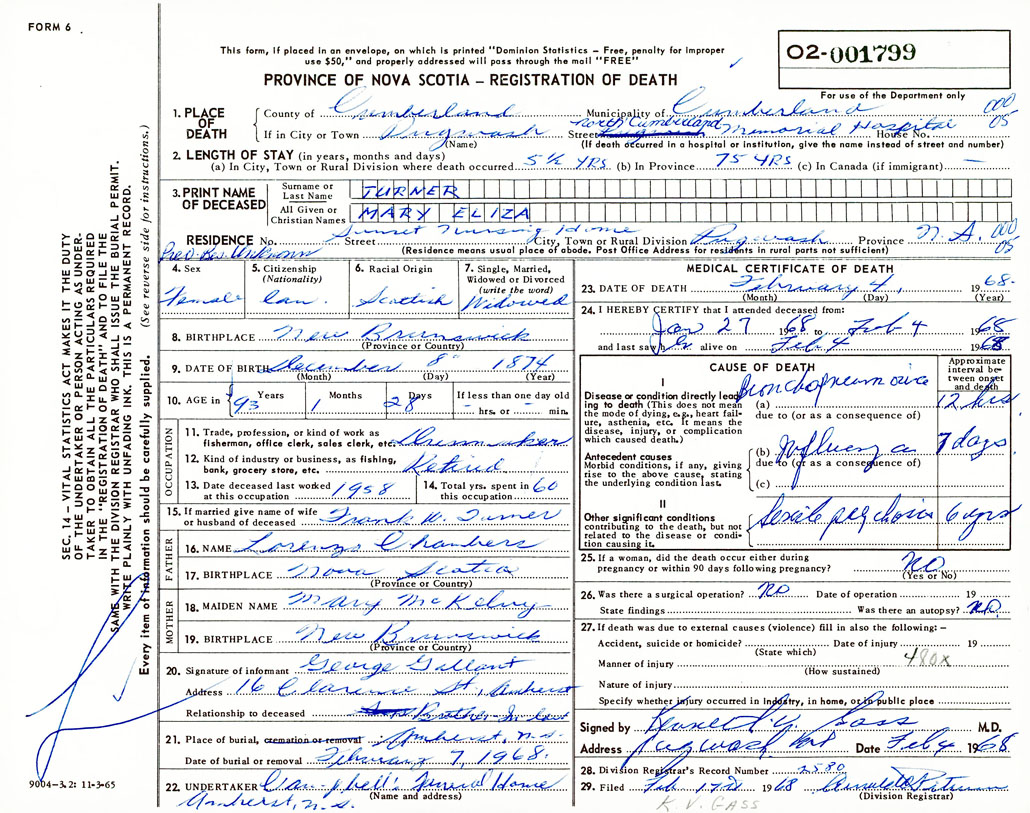 FORM 6
This form, if placed in an envelope, on which is printed "Dominion Statistics - Free, penalty for improper
use $50," and properly addressed will pass through the mail "FREE"
PROVINCE OF NOVA SCOTIA - REGISTRATION OF DEATH
02-001799
For use of the Department only
SEC. 14 - VITAL STATISTICS ACT MAKES IT THE DUTY
OF THE UNDERTAKER OR PERSON ACTING AS UNDER-
TAKER TO OBTAIN ALL THE PARTICULARS REQUIRED
IN THE "REGISTRATION OF DEATH" AND TO FILE THE
SAME WITH THE DIVISION REGISTRAR WHO SHALL ISSUE THE BURIAL PERMIT.
WRITE PLAINLY WITH UNFADING INK. THIS IS A PERMANENT RECORD.
Every item of information should be carefully supplied. (See reverse side for instructions.)
1. PLACE OF DEATH
County of Cumberland Municipality of Cumberland 000
If in City or Town Pugwash Street North Cumberland Memorial Hospital House No. 05
(Name) (If death occurred in a hospital or institution, give the name instead of street and number)
2. LENGTH OF STAY (in years, months and days)
(a) In City, Town or Rural Division where death occurred 5½ YRS (b) In Province 75 YRS (c) In Canada (if immigrant) —
3. PRINT NAME OF DECEASED
Surname or Last Name TURNER
All Given or Christian Names MARY ELIZA
RESIDENCE No. Street Sunset Nursing Home City, Town or Rural Division Pugwash Province 000
(Residence means usual place of abode. Post Office Address for residents in rural parts not sufficient) 05
Unknown
4. Sex Female
5. Citizenship (Nationality) Can.
6. Racial Origin Scottish
7. Single, Married, Widowed or Divorced (write the word) Widowed
8. BIRTHPLACE New Brunswick
(Province or Country)
9. DATE OF BIRTH December 8th 1874
(Month) (Day) (Year)
10. AGE in 93 Years 1 Months 28 Days If less than one day old - hrs. or - min.
OCCUPATION
11. Trade, profession, or kind of work as fisherman, office clerk, sales clerk, etc. Dressmaker
12. Kind of industry or business, as fishing, bank, grocery store, etc. Retired
13. Date deceased last worked at this occupation 1958
14. Total yrs. spent in this occupation 60
15. If married give name of wife or husband of deceased Frank W. Turner
FATHER
16. NAME Lorenzo Chambers
17. BIRTHPLACE Nova Scotia
(Province or Country)
MOTHER
18. MAIDEN NAME Mary McKelvy
19. BIRTHPLACE New Brunswick
(Province or Country)
20. Signature of informant George Gallant
Address 16 Clarence St, Amherst
Relationship to deceased Brother In Law
21. Place of burial, cremation or removal Amherst, N.S.
Date of burial or removal February 7, 1968.
22. UNDERTAKER Campbell's Funeral Home
Amherst, N.S. (Name and address)
9004-3.2: 11-3-65
MEDICAL CERTIFICATE OF DEATH
23. DATE OF DEATH February 4, 1968.
(Month) (Day) (Year)
24. I HEREBY CERTIFY that I attended deceased from:
Jan 27 1968 to Feb 4 1968
and last saw her alive on Feb 4 1968
CAUSE OF DEATH
Approximate interval between onset and death
I
Disease or condition directly leading to death (This does not mean the mode of dying, e.g., heart failure, asthenia, etc. It means the disease, injury, or complication which caused death.)
(a) Bronchopneumonia 12 hrs
due to (or as a consequence of)
Antecedent causes
Morbid conditions, if any, giving rise to the above cause, stating the underlying condition last.
(b) Influenza 7 days
due to (or as a consequence of)
(c)
II
Other significant conditions contributing to the death, but not related to the disease or condition causing it.
Senile psychosis 6 yrs
25. If a woman, did the death occur either during pregnancy or within 90 days following pregnancy? NO
(Yes or No)
26. Was there a surgical operation? NO Date of operation 19
State findings Was there an autopsy? NO.
27. If death was due to external causes (violence) fill in also the following: -
Accident, suicide or homicide? Date of injury 19
(State which)
480X
Manner of injury
(How sustained)
Nature of injury
Specify whether injury occurred in Industry, in home, or in public place
Signed by Gass M.D.
Address Pugwash Date Feb 4 1968
28. Division Registrar's Record Number 2580
29. Filed Feb 1968
(Division Registrar)
K. V. GASS